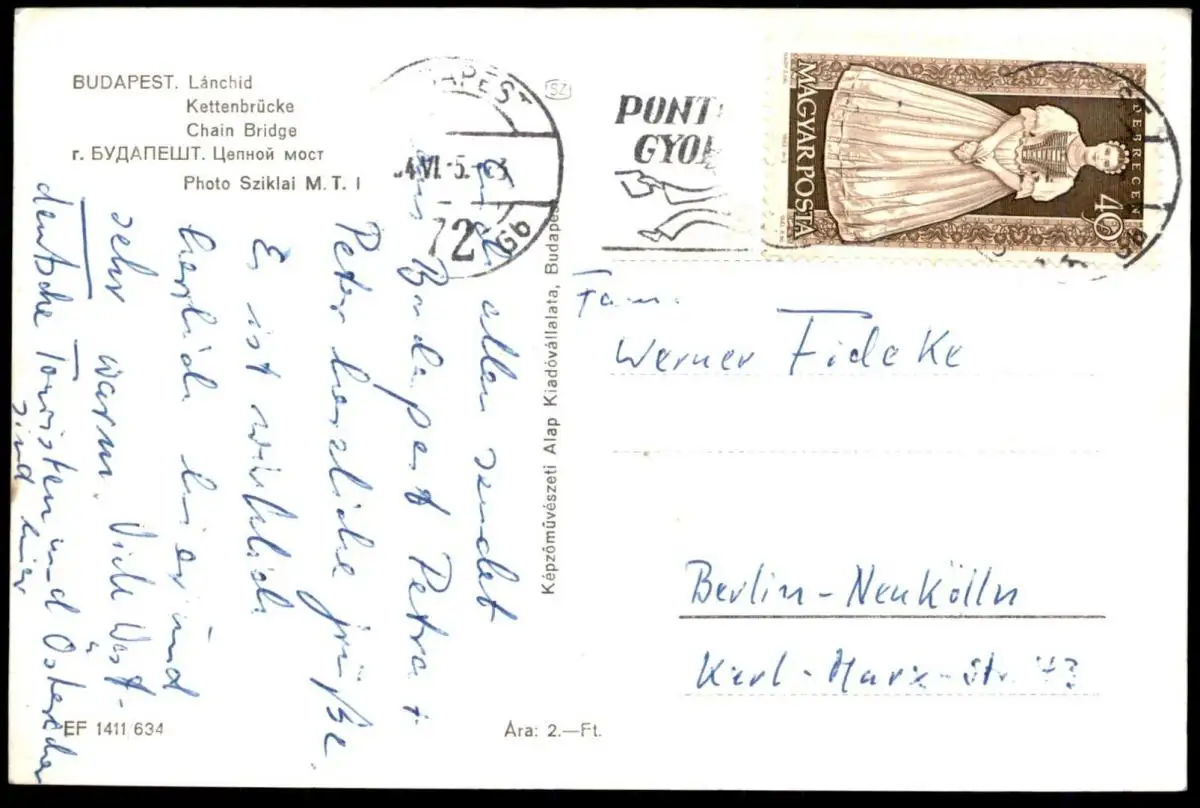 BUDAPEST. Lánchid
Kettenbrücke
Chain Bridge
г. БУДАПЕШТ. Цепной мост
Photo Sziklai M. T. I
SZ
APEST
VI.-5.
72
PONT
GYO
MAGYAR POSTA
DEBRECEN
40
Euch allen sendet
aus Budapest Petra +
Peter herzliche Grüße.
Es ist wirklich
herrlich hier und
sehr warm. Viele West-
deutsche Touristen und Österreicher
sind hier
Képzőművészeti Alap Kiadóvállalata, Budapest
Fam.
Werner Fideke
Berlin-Neukölln
Karl-Marx-Str. 43
EF 1411/634
Ára: 2.—Ft.